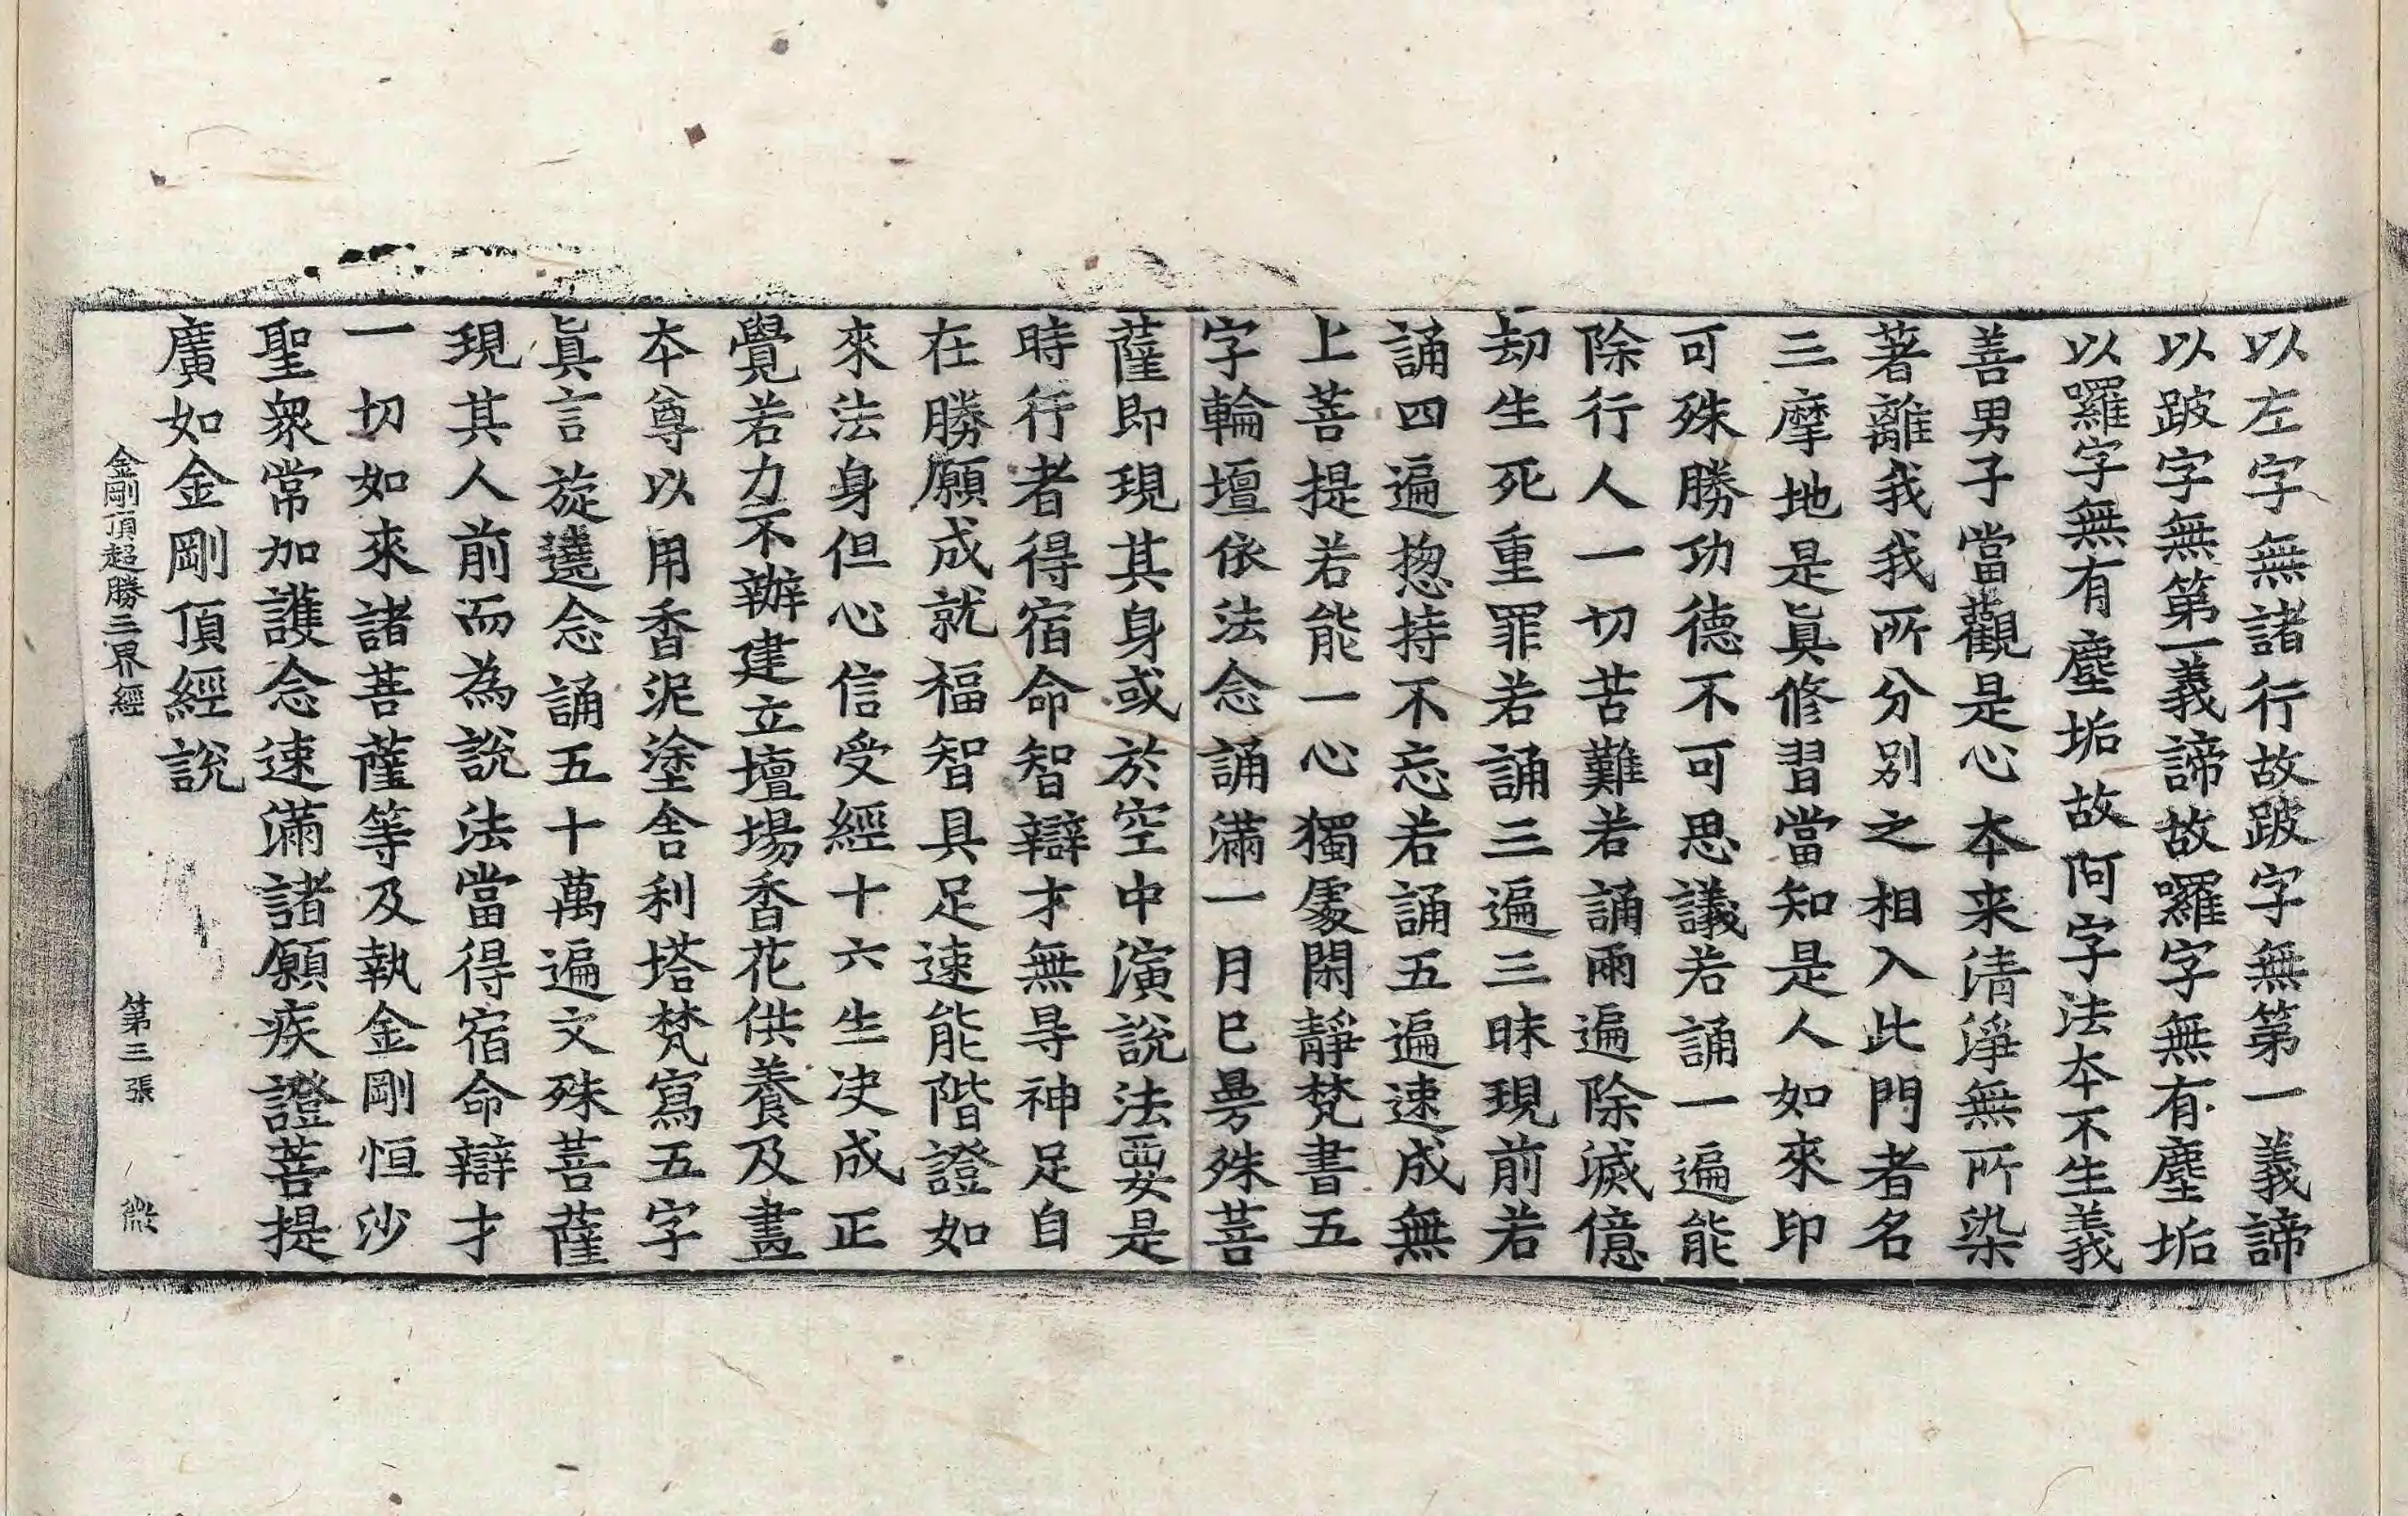 以左字無諸行故跛字無第一義諦
以跛字無第一義諦故囉字無有塵垢
以囉字無有塵垢故阿字法夲不生義
善男子當觀是心夲来清淨無所染
著離我我所分別之相入此門者名
三摩地是眞修習當知是人如來印
可殊勝功德不可思議若誦一遍能
除行人一切苦難若誦兩遍除滅億
劫生死重罪若誦三遍三昧現前若
誦四遍揔持不忘若誦五遍速成無
上菩提若能一心獨處閑靜梵書五
字輪壇依法念誦滿一月已曼殊菩
薩即現其身或於空中演說法要是
時行者得宿命智辯才無㝵神足自
在勝願成就福智具足速能階證如
來法身但心信受經十六生决成正
覺若力不辦建立壇場香花供養及畫
夲尊以用香泥塗舍利塔梵寫五字
眞言旋遶念誦五十萬遍文殊菩薩
現其人前而為說法當得宿命辯才
一切如來諸菩薩等及執金剛恒沙
聖衆常加護念速滿諸願疾證菩提
廣如金剛頂經說
金剛頂超勝三界經 第三張 㣲